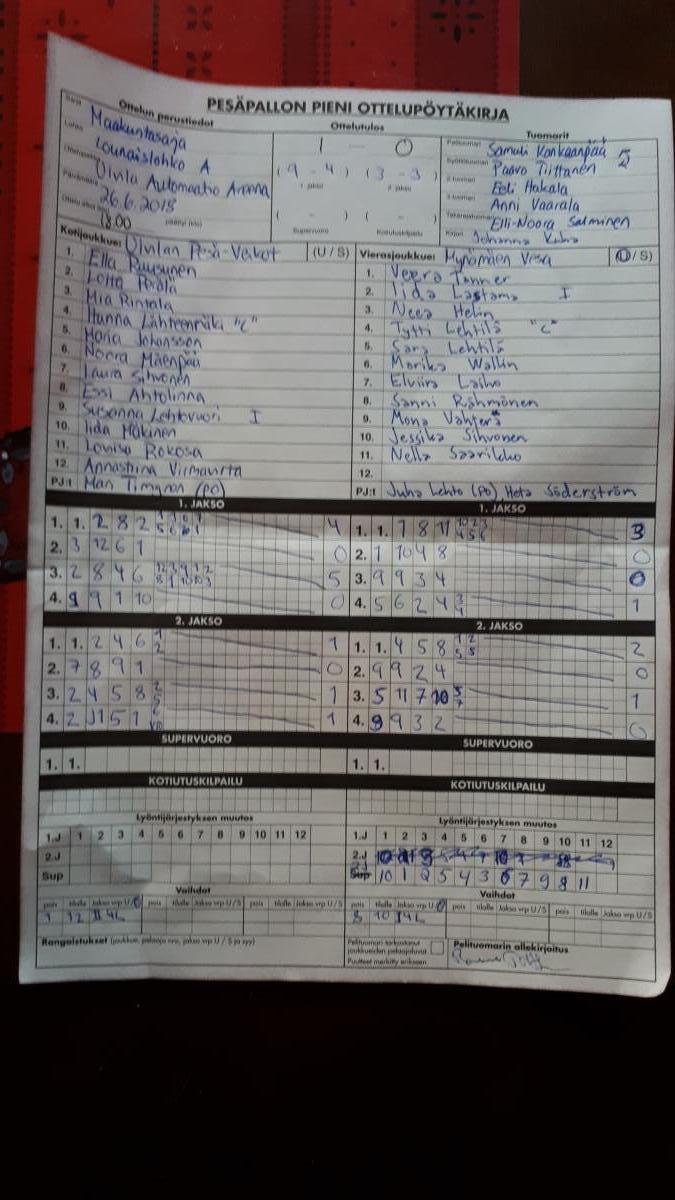 PESÄPALLON PIENI OTTELUPÖYTÄKIRJA
Ottelun perustiedot
Ottelutulos
Tuomarit
Maakuntasarja
Lounaislohko A
Ulvila Automaatio Areena
26.6.2015
18.00
1 - 0
(9 - 4) (3 - 3)
1. jakso 2. jakso
( - ) ( - )
Supervuoro Kotiutuskilpailu
Pelituomari Samuli Kankaanpää
Paavo Tiittanen
2-tuomari Eeli Hakala
3-tuomari Anni Vaarala
Elli-Noora Salminen
Johanna
Kotijoukkue: Ulvilan Pesä-Veikot (U / S)
1. Ella Ruusunen
2. Lotta Perälä
3. Mia Rintala
4. Hanna Lähteenmäki "C"
5. Maria Johansson
6. Noora Mäenpää
7. Laura Sihvonen
8. Essi Ahtolinna
9. Susanna Lehtovuori I
10. Iida Mäkinen
11. Loviisa Rokosa
12. Annastiina Virmavirta
PJ:t
Vierasjoukkue: Mynämäen Vesa (U / S)
1. Veera Tanner
2. Iida Lastama I
3. Neea Helin
4. Tytti Lehtilä "C"
5. Sara Lehtilä
6. Marika Wallin
7. Elviira Laiho
8. Sanni Rähmönen
9. Mona Vahterä
10. Jessika Sihvonen
11. Nella Saarikko
12.
PJ:t Juha Lehto (PO), Heta Söderström
1. JAKSO
1. 1. 2 8 2 4
2. 3 12 6 1 0
3. 2 8 4 6 5
4. 9 9 1 10 0
2. JAKSO
1. 1. 2 4 6 1
2. 7 8 9 1 0
3. 2 4 5 8 1
4. 2 11 5 1 1
SUPERVUORO
1. 1.
KOTIUTUSKILPAILU
1. JAKSO
1. 1. 7 8 11 3
2. 1 10 4 8 0
3. 9 9 3 4 0
4. 5 6 2 4 1
2. JAKSO
1. 1. 4 5 8 2
2. 9 9 2 4 0
3. 5 11 7 10 1
4. 9 9 3 2 0
SUPERVUORO
1. 1.
KOTIUTUSKILPAILU
Lyöntijärjestyksen muutos
1.J 1 2 3 4 5 6 7 8 9 10 11 12
2.J
Sup
Vaihdot
pois tilalle Jakso vrp U / S pois tilalle Jakso vrp U / S pois tilalle Jakso vrp U / S
Rangaistukset (joukkue, pelaaja nro, jakso vrp U / S ja syy)
Lyöntijärjestyksen muutos
1.J 1 2 3 4 5 6 7 8 9 10 11 12
2.J
Sup 10 1 2 5 4 3 6 7 9 8 11
Vaihdot
pois tilalle Jakso vrp U / S pois tilalle Jakso vrp U / S pois tilalle Jakso vrp U / S
Pelituomari tarkastanut
joukkueiden pelaajaluvat
Puutteet merkitty erikseen
Pelituomarin allekirjoitus